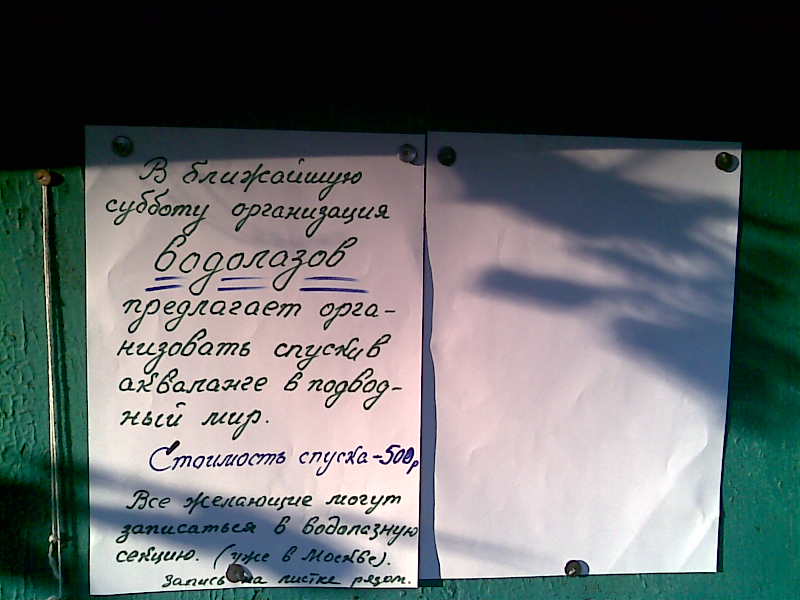 В ближайшую
субботу организация
водолазов
предлагает орга-
низовать спуски в
акваланге в подвод-
ный мир.
Стоимость спуска - 500р
Все желающие могут
записаться в водолазную
секцию. (уже в Москве).
Запись на листке рядом.